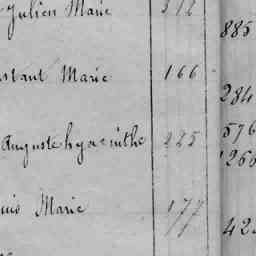 Julien Marie 312
885
stant Marie 166
284
Auguste hyacinthe 225
576
1260
uis Marie 177
42